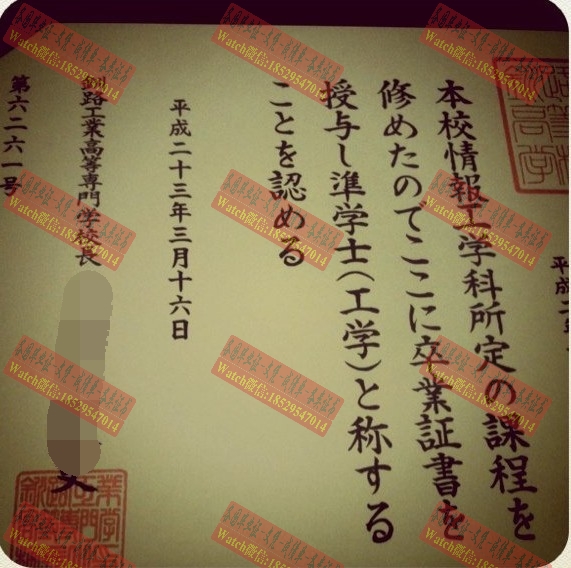 本校情報工学科所定の課程を
修めたのでここに卒業証書を
授与し準学士(工学)と称する
ことを認める
平成二十三年三月十六日
釧路工業高等専門学校長
第六二六一号
平成二
Watch微信:18529547014
Watch微信:18529547014
Watch微信:18529547014
Watch微信:18529547014
Watch微信:18529547014
Watch微信:18529547014
Watch微信:18529547014
Watch微信:18529547014
Watch微信:18529547014
Watch微信:18529547014
Watch微信:18529547014
Watch微信:18529547014